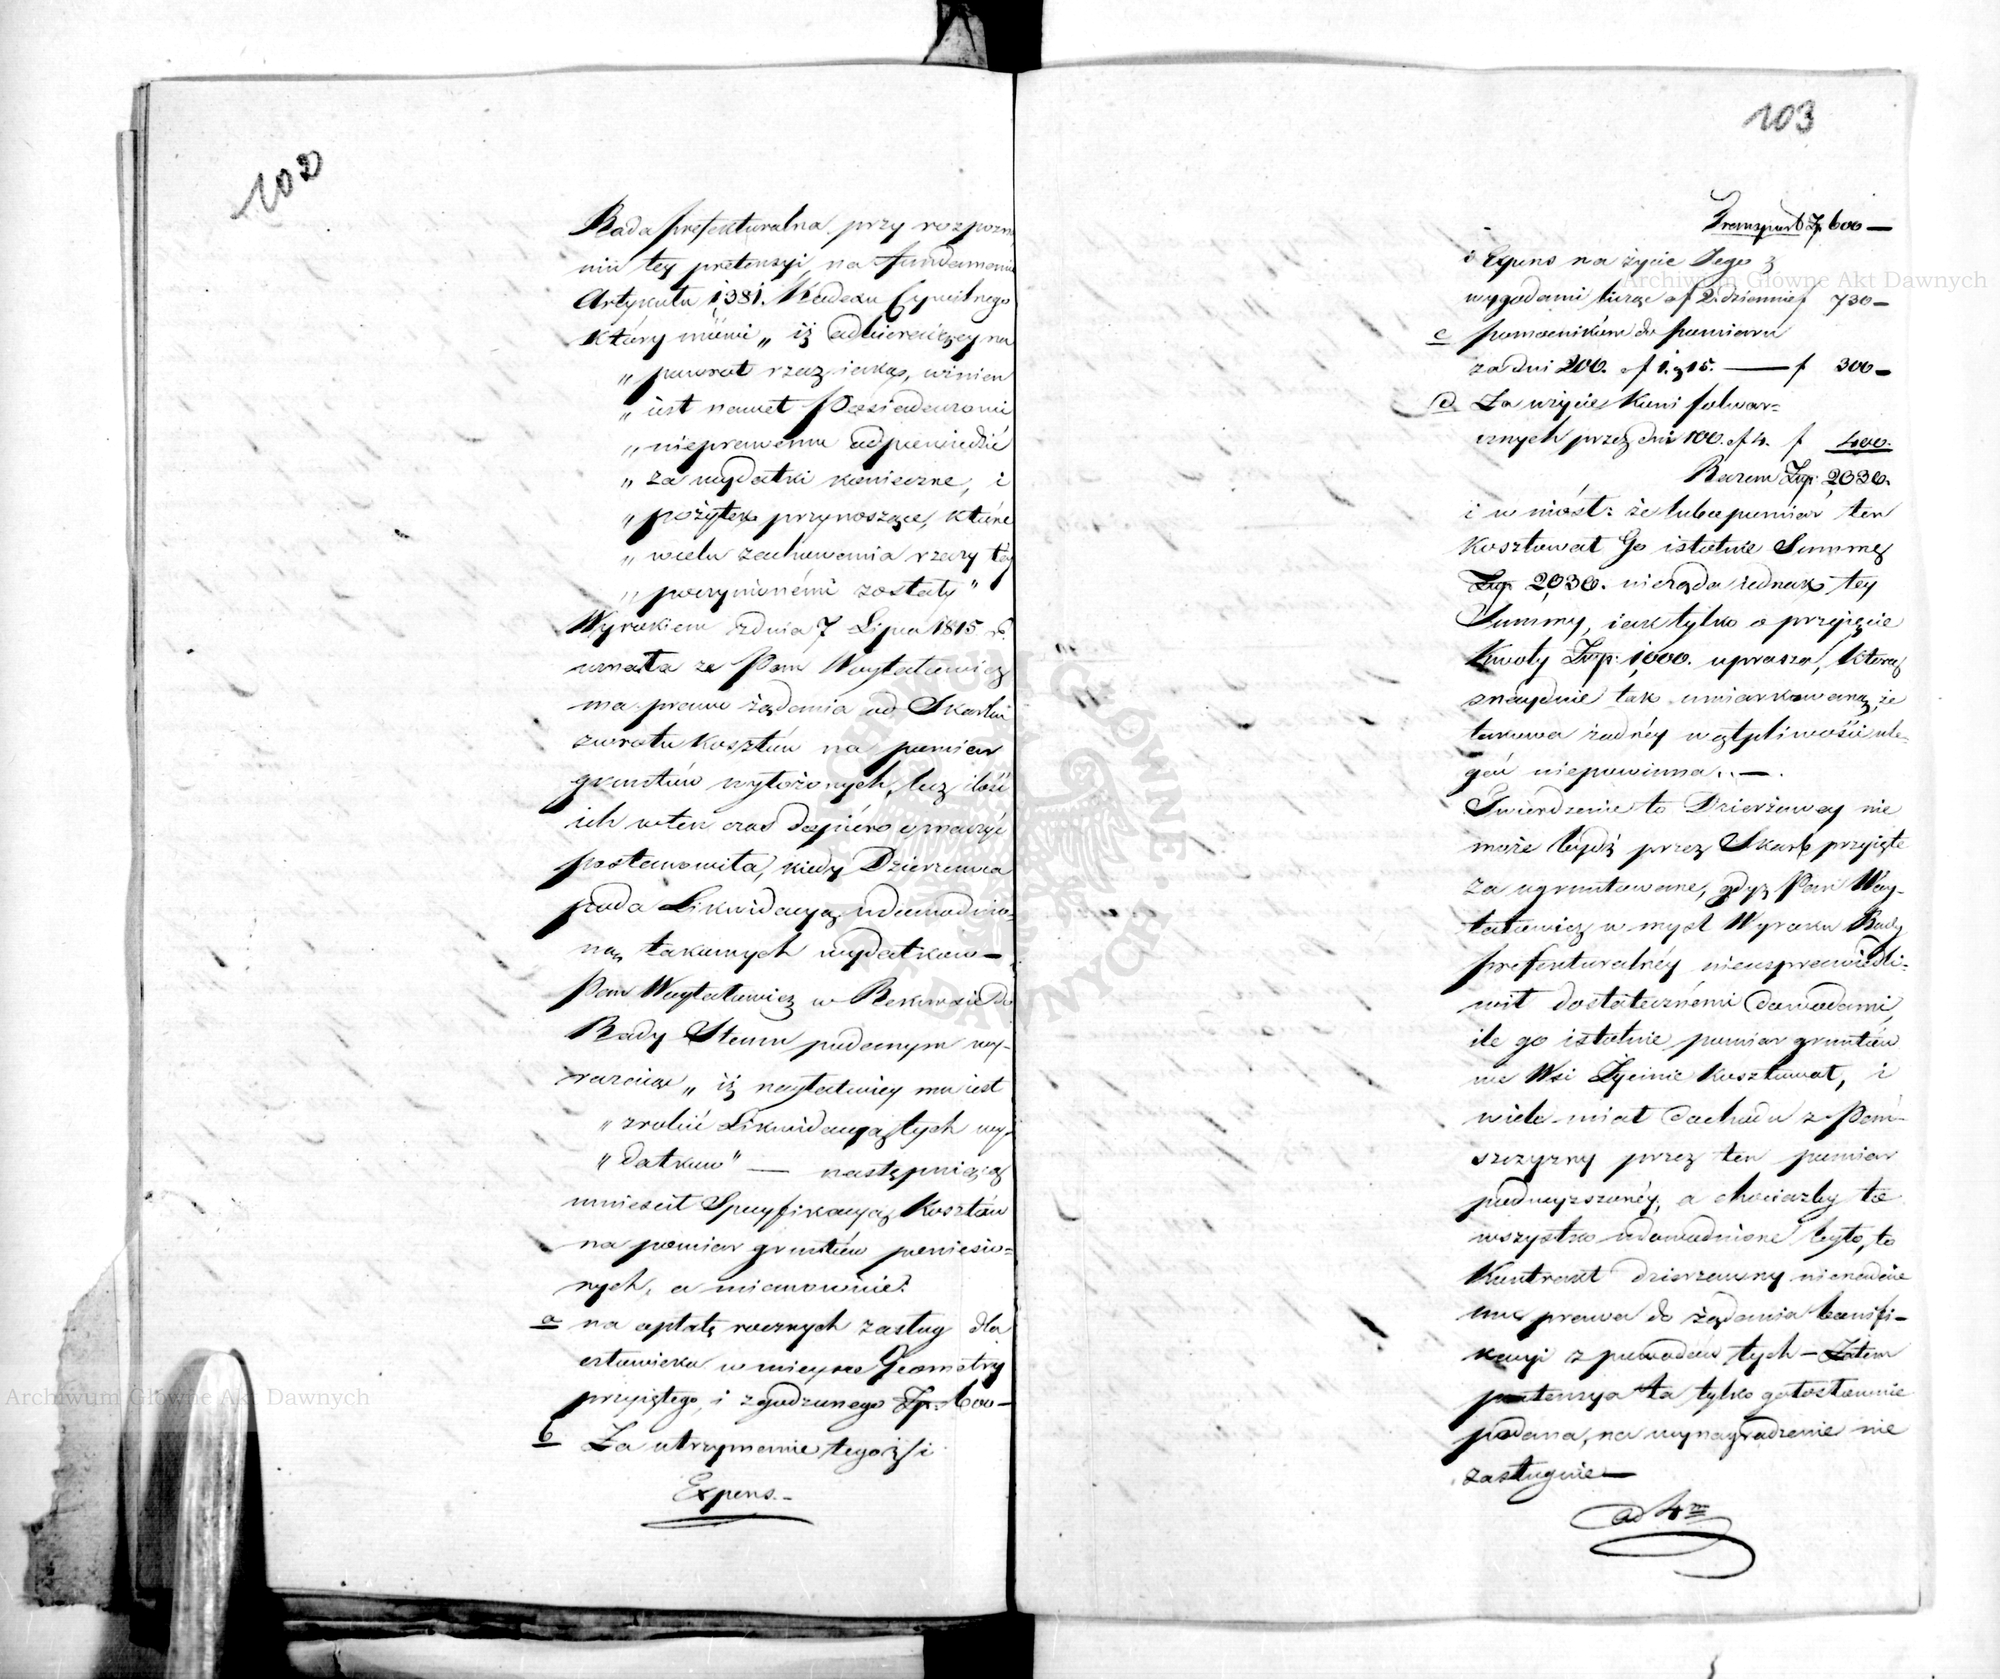 102
Rada prefekturalna przy rozpozna
niu tey pretensyi, na fundamencie
Artykułu 1381. Kodexu Cywilnego
który mówi „ iż odbieraiący na
„ powrót rzecz iaką, winien
„ iest nawet Posiadaczowi
„ nieprawemu odpowiedzić
„ za wydatki konieczne, i
„ pożytek przynoszące, które
„ w celu zachowania rzeczy tey
„ poczynionémi zostały"
Wyrokiem z dnia 7 Lipca 1815 r.
uznała że Pan Woytatowicz
ma prawo żądania od Skarbu
zwrotu kosztów na pomiar
gruntów wyłożonych, lecz ilość
ich w ten czas dopiéro oznaczyć
postanowiła, kiedy Dzierżawca
poda Likwidacyą udowodnio-
ną takowych wydatków —
Pan Woytatowicz w Rekursie do
Rady Stanu podanym wy-
rażaiąc „ iż nayłatwiey mu iest
„ zrobić Likwidacyą tych wy-
„ datków" — następuiącą
umieścił Specyfikacyą Kosztów
na pomiar gruntów poniesio-
nych, a mianowicie:
a na opłatę rocznych zasług dla
człowieka w mieysce Geometry
przyiętego, i zgodzonego Zp. 600 —
b Za utrzymanie tegoż i
Expens. —
103
Transport Zp. 600 —
i Expens na życie Jego z
wygodami licząc a f 2. dziennie f 730 —
c pomocników do pomiaru
za dni 200. a f 1. g 15. — f 300 —
d Za użycie Koni folwar-
cznych przez dni 100. a f 4. f 400.
Razem Złp: 2030.
i wniósł: że lubo pomiar ten
kosztował Go istotnie Summę
Złp. 2030. nieżąda iednak tey
Summy, iak tylko o przyięcie
Kwoty Złp: 1,000. uprasza, którą
znayduie tak umiarkowaną, że
takowa żadnéy wątpliwości ule-
gać niepowinna. . — .
Twierdzenie to Dzierżawcy nie
może bydź przez Skarb przyięte
za ugruntowane, gdyż Pan Woy-
tatowicz w myśl Wyroku Rady
prefekturalnéy nieusprawiedli-
wił dostatecznémi dowodami,
ile go istotnie pomiar gruntów
we Wsi Życinie kosztował, i
wiele miał dochodu z Pań-
szczyzny przez ten pomiar
podwyższonéy, a chociażby to
wszystko udowodnione było, to
Kontrakt dzierżawny nienadaie
mu prawa do żądania bonifi-
kacyi z powodów tych — Zatem
pretensya ta tylko gołosłownie
podana, na wynagrodzenie nie
zasługuie —
ad 4m
Archiwum Główne Akt Dawnych
Archiwum Główne Akt Dawnych
ARCHIWUM GŁÓWNE AKT DAWNYCH